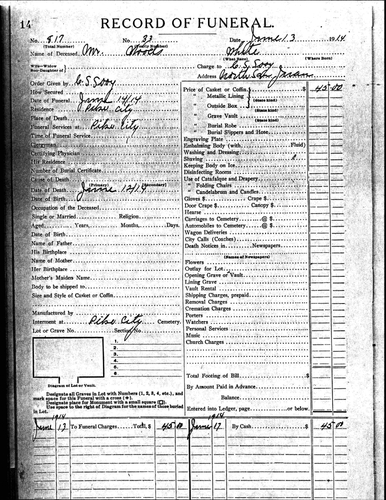 14
RECORD OF FUNERAL.
No. 817 No. 33 Date June 13 1914
(Total Number) (Yearly Number)
Name of Deceased Mr. White
(What Race) (Where Born)
Wife—Widow
Son-Daughter of
Charge to C. S. Sooy
Address
Order Given by C. S. Sooy
How Secured
Date of Funeral June 14/14
Residence Pilse City
Place of Death
Funeral Services at Pilse City
Time of Funeral Service
Clergyman
Certifying Physician
His Residence
Number of Burial Certificate
Cause of Death
(Primary) (Secondary)
Date of Death June 12/14
Occupation of the Deceased
Single or Married Religion
Aged, Years, Months, Days.
Date of Birth
Name of Father
His Birthplace
Name of Mother
Her Birthplace
Mother's Maiden Name
Body to be shipped to
Size and Style of Casket or Coffin
Manufactured by
Interment at Pilse City Cemetery.
Lot or Grave No. Section No.
1
2
3
4
5
6
Diagram of Lot or Vault.
Designate all Graves in Lot with Numbers (1, 2, 3, 4, etc.), and
mark space for this Funeral with a cross (✕).
Designate place for Monument with a small square (□).
Use space to the right of Diagram for the names of those buried
in Lot.
Price of Casket or Coffin $ 45 00
" Metallic Lining
(State kind)
" Outside Box
(State kind)
" Grave Vault
(State kind)
" Burial Robe
(State kind)
" Burial Slippers and Hose
Engraving Plate
Embalming Body (with Fluid)
Washing and Dressing
Shaving
Keeping Body on Ice
Disinfecting Rooms
Use of Catafalque and Drapery
" Folding Chairs
" Candelabrum and Candles
Gloves $ Crape $
Door Crape $ Canopy $
Hearse
Carriages to Cemetery @ $
Automobiles to Cemetery @ $
Wagon Deliveries
City Calls (Coaches)
Death Notices in Newspapers
(Names of Newspapers)
Flowers
Outlay for Lot
Opening Grave or Vault
Lining Grave
Vault Rental
Shipping Charges, prepaid
Removal Charges
Cremation Charges
Porters
Watchers
Personal Services
Music
Church Charges
Total Footing of Bill $
By Amount Paid in Advance
Balance
Entered into Ledger, page or below.
1914
June 13 To Funeral Charges Total, $ 45 00
1914
June 17 By Cash $ 45 00